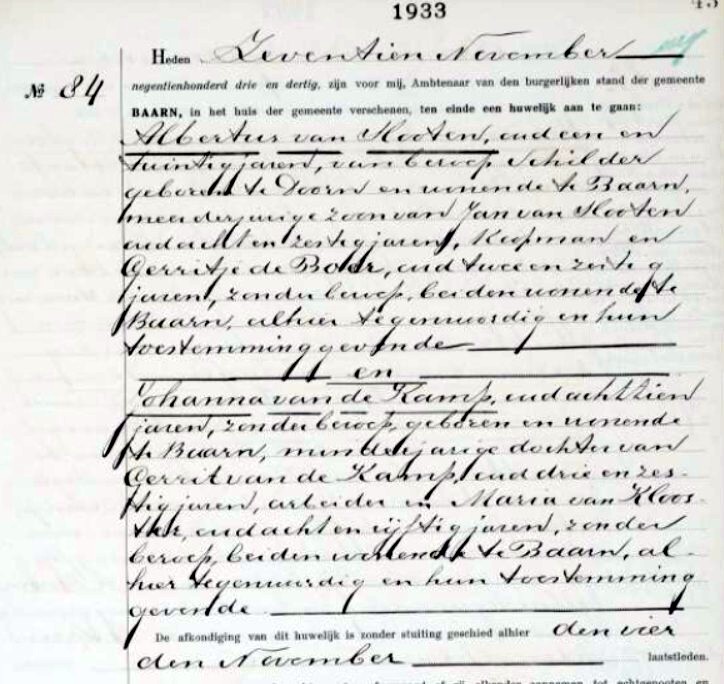 1933
43
Heden Zeventien November
No 84
negentienhonderd drie en dertig, zijn voor mij, Ambtenaar van den burgerlijken stand der gemeente
BAARN, in het huis der gemeente verschenen, ten einde een huwelijk aan te gaan:
Albertus van Slooten, oud een en
twintig jaren, van beroep Schilder
geboren te Doorn en wonende te Baarn,
meerderjarige zoon van Jan van Slooten
oud acht en zestig jaren, Koopman en
Gerritje de Boer, oud twee en zestig
jaren, zonder beroep, beiden wonende te
Baarn, alhier tegenwoordig en hun
toestemming gevende
en
Johanna van de Kamp, oud achttien
jaren, zonder beroep, geboren en wonende
te Baarn, minderjarige dochter van
Gerrit van de Kamp, oud drie en zes-
tig jaren, arbeider en Maria van Kloos-
ter, oud acht en vijftig jaren, zonder
beroep, beiden wonende te Baarn, al-
hier tegenwoordig en hun toestemming
gevende
De afkondiging van dit huwelijk is zonder stuiting geschied alhier den vier
den November laatstleden.